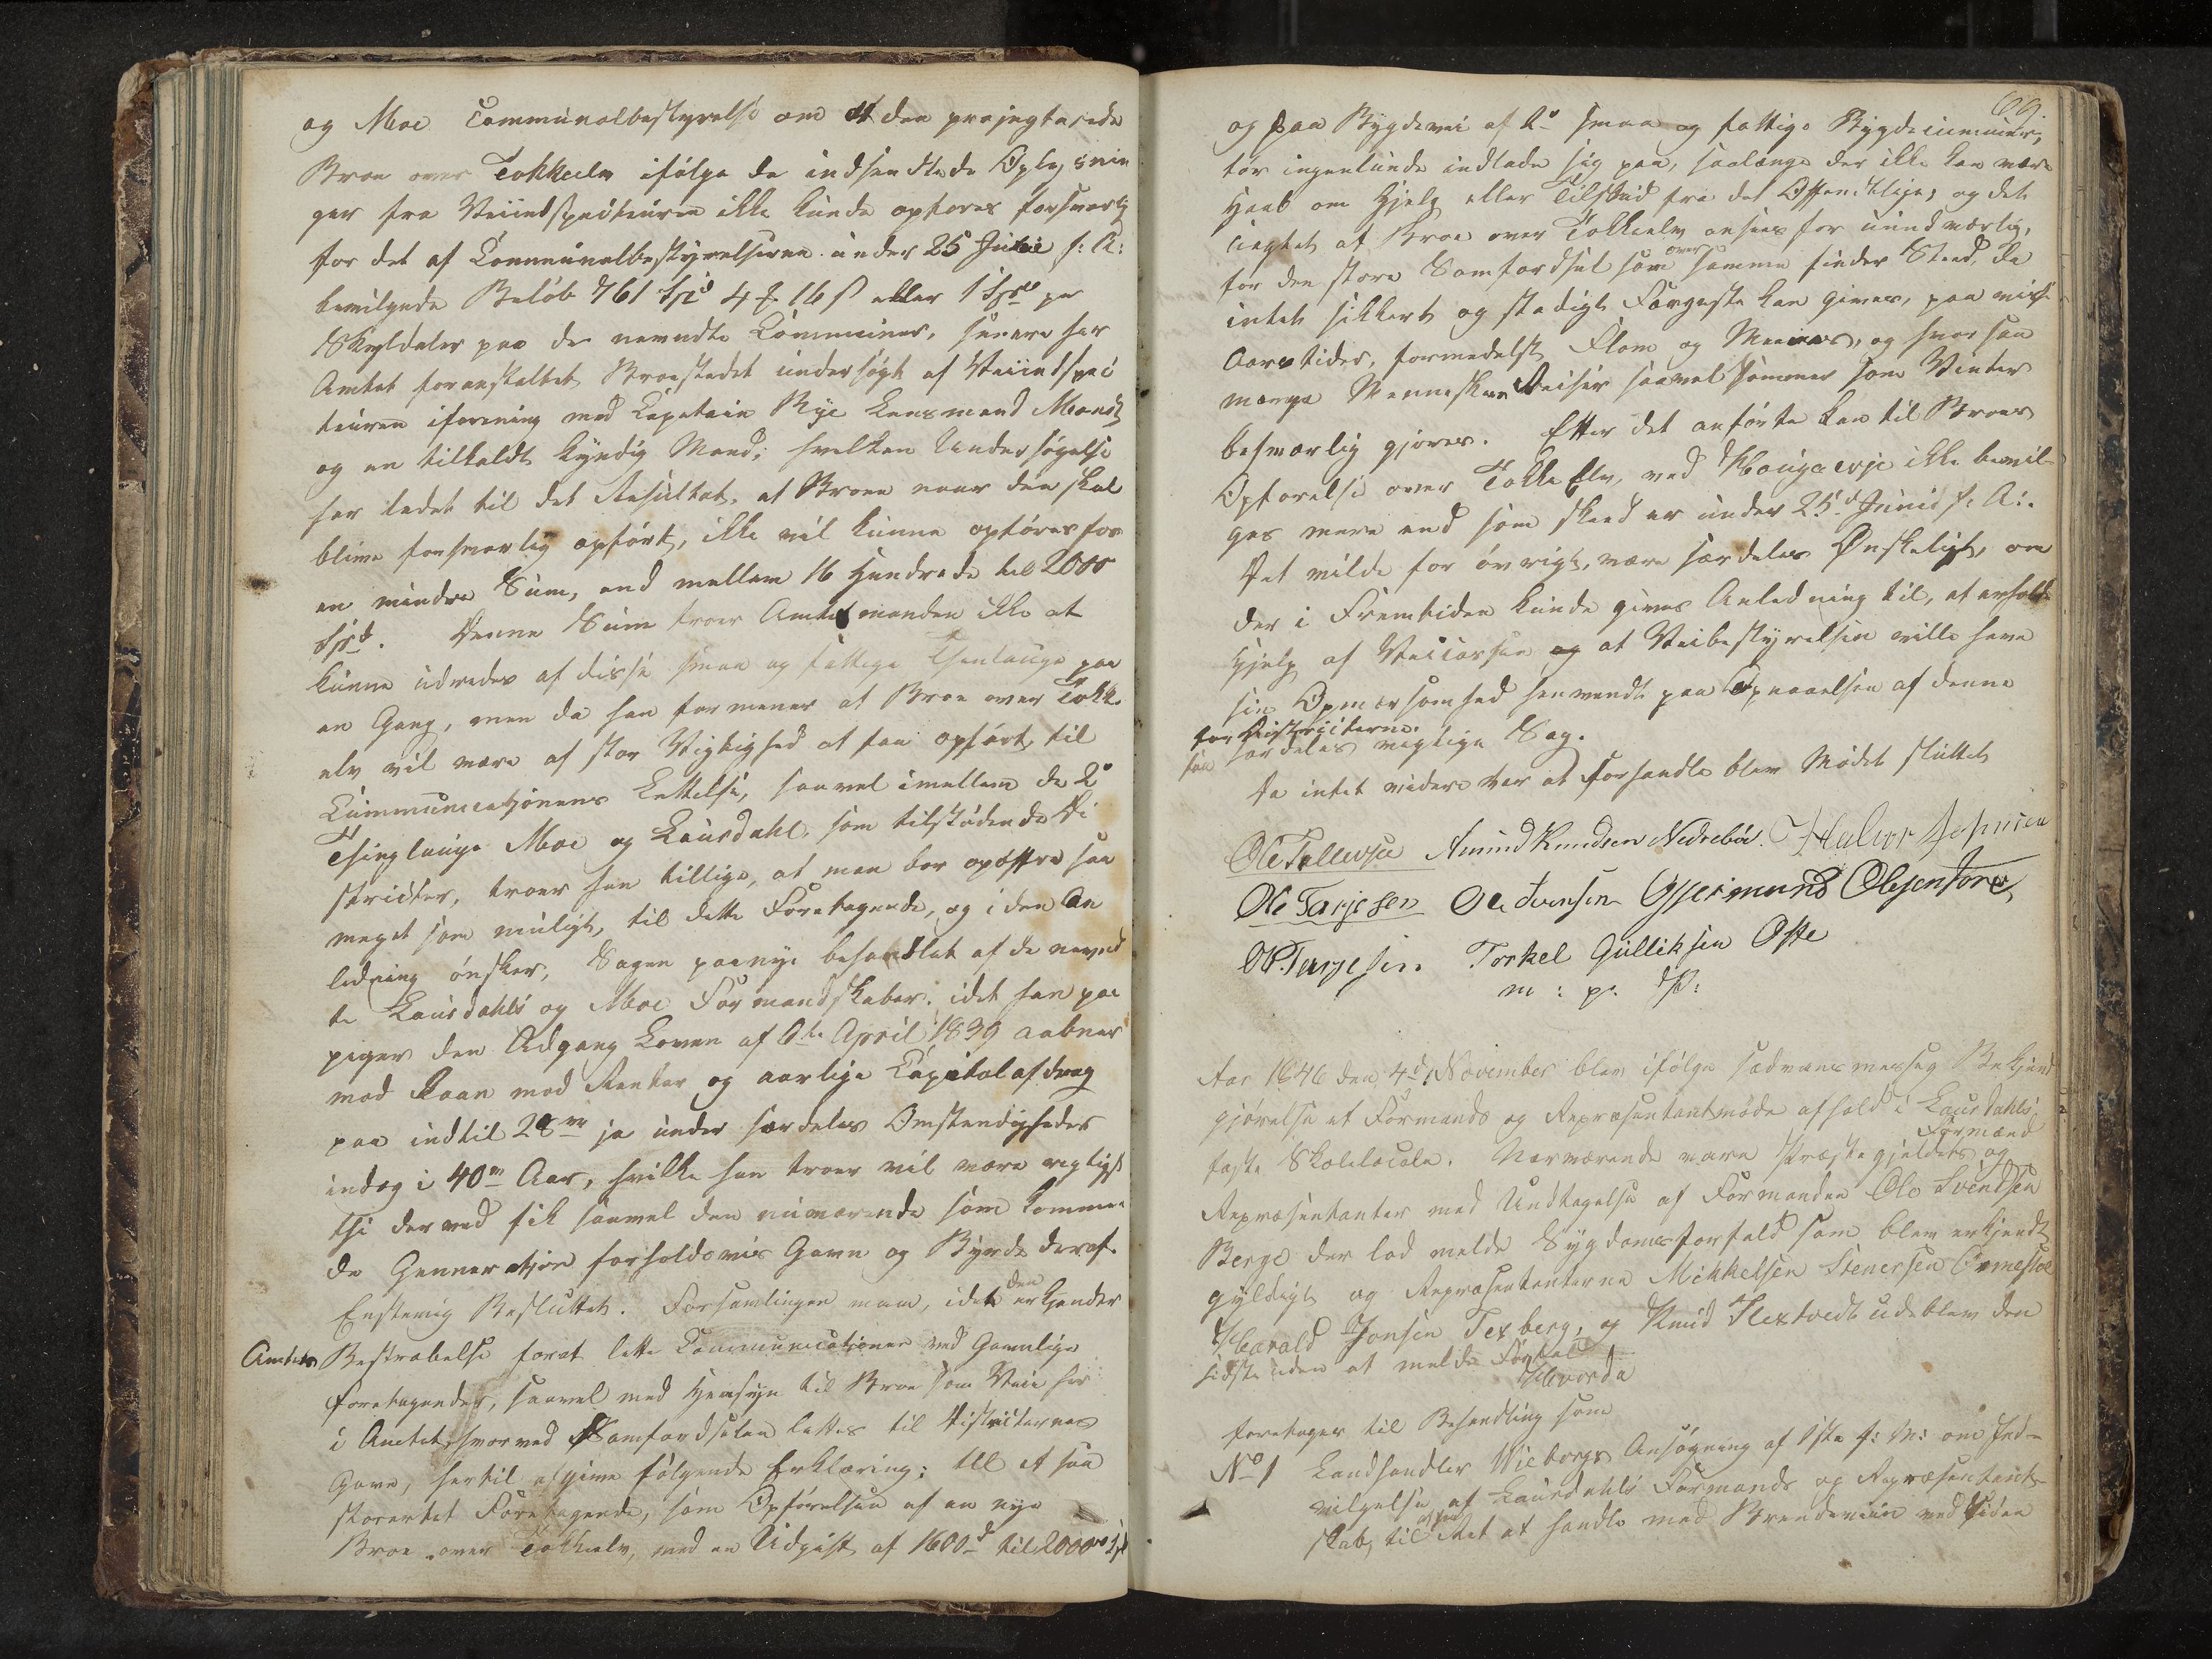 og Moe Communalbestyrelse om at den projegterede
Broe over Tokkeelv ifølge de indsendtede Oplysnin
ger fra Veiindspecteuren ikke kunde opføres forsvarlig
for det af Communalbestyrelserne under 25 Junii f: A:
bevilgede Beløb 761 Spd 4 ℔ 16 ß eller 1 Spd pr
Skylddaler paa de nevndte Communer, senere har
Amtet foranstaltet Broestedet undersøgt af Veiindspec
teuren iforening med Capetain Rye Lensmand
og en tilkaldt kyndig Mand; hvilken Undersøgelse
har ledet til det Resultat, at Broen naar den skal
blive forsvarlig opført, ikke vil kunne opføres for
en mindre Sum, end mellem 16 Hundrede til 2000
Spd. Denne Sum troer Amtmanden ikke at
kunne udredes af disse smaa og fattige Thinlauge paa
en Gang, men da han formener at Broe over Tokke
elv vil være af stor Vigtighed at faa opført, til
Communicationens Lettelse, saavel imellem de 2de
Thinglauge Moe og Laurdahl, som tilstødende Di
stricter, troer han tillige, at man bør opoffre saa
meget som muligt, til dette Foretagende, og i den An
ledning ønsker, Sagen paanye behandlet af de nevnd
te Laurdahls og Moe Formandskaber; idet han paa
peger den Adgang Loven af April 1839 aabner
mod Laan mod Renter og aarlige Capitalafdrag
paa indtil 28 ja under særdeles Omstendigheder
indog i 40 Aar, hvilke han troer vil være vigtigst
thi derved fik saavel den nuværende som kommen
de Genneration forholdsvis Gavn og Byrde deraf.
Enstemig Besluttet. Forsamlingen maa, idet den erkjender
Amtets Bestrabelse forat lette Communicationer ved Gavnlige
foretagender, saavel med Hensyn til Broe som Veie her
i Amtet, hvorved Samfærdselen lettes til Districternes
Gavn, hertil afgive følgende Erklæring: At et saa
stoerartet Foretagende, som Opførelsen af en nye
Broe over Tokkeelv, med en Udgift af 1600 til 2000 Spd
69.
og paa Bygdevei af 2de smaa og fattige Bygdecommuner,
tør ingenlunde indlade sig paa, saalænge der ikke kan være
Haab om Hjelp eller Tilskud fra det Offentlige; og det
uagtet at Broe over Tokkeelv ansees for uundværlig,
for den store Samfærdsel som over samme finder Sted, da
intet sikkert og stadigt Færgested kan gives, paa visse
Aarstider, formedelst Flom og, og hvor saa
mange Menneskers Reiser saavel Sommer som Vinter
besværlig gjøres. Efter det anførte kan til Broens
Opførelse over Tokke Elv, ved ikke bevil-
ges mere end som skeed er under 25de Junii f: A:.
Det vilde for øvrigt, være særdeles Ønskeligt, om
der i Fremtiden kunde gives Anledning til, at erholde
Hjelp af Veicassen og at Veibestyrelsen ville have
sin Opmærksomhed henvendt paa Opnaaelsen af denne
for Districterne
saa særdeles vigtige Sag.
Da intet videre var at Forhandle blev Mødet sluttet
Ole Tellevsen Amund Knudsen Nedrebøe. Halvor Johnsen
Ole Tarjesen Ole Svensen Gjermund Olsen
O. Tarjesen. Torkel Gulliksen Ofte
m: p: P:
Aar 1846 den 4de November blev ifølge sædvansmessig Bekjend
gjørelse et Formands og Repræsentantmøde afhold i Laurdahls
faste Skolelocale. Nærværende vare Præstegjeldets Formænd og
Repræsentanter med Undtagelse af Formanden Ole Svendsen
Berge der lod melde Sygdomsforfald som blev erkjendt
gyldigt og Repræsentanterne Mikkelsen Stenersen
Harald Jonsen Texberg, og Knud Flextvedt udeblev den
sidste uden at melde Forfald
Hvorda
foretoges til Behandling som
No 1 Landhandler Wieborgs Ansøgning af 1ste f: M: om Ind-
vilgelse af Laurdahls Formands og Repræsentant-
skab, til Ret at handle med Brendeviin ved Siden